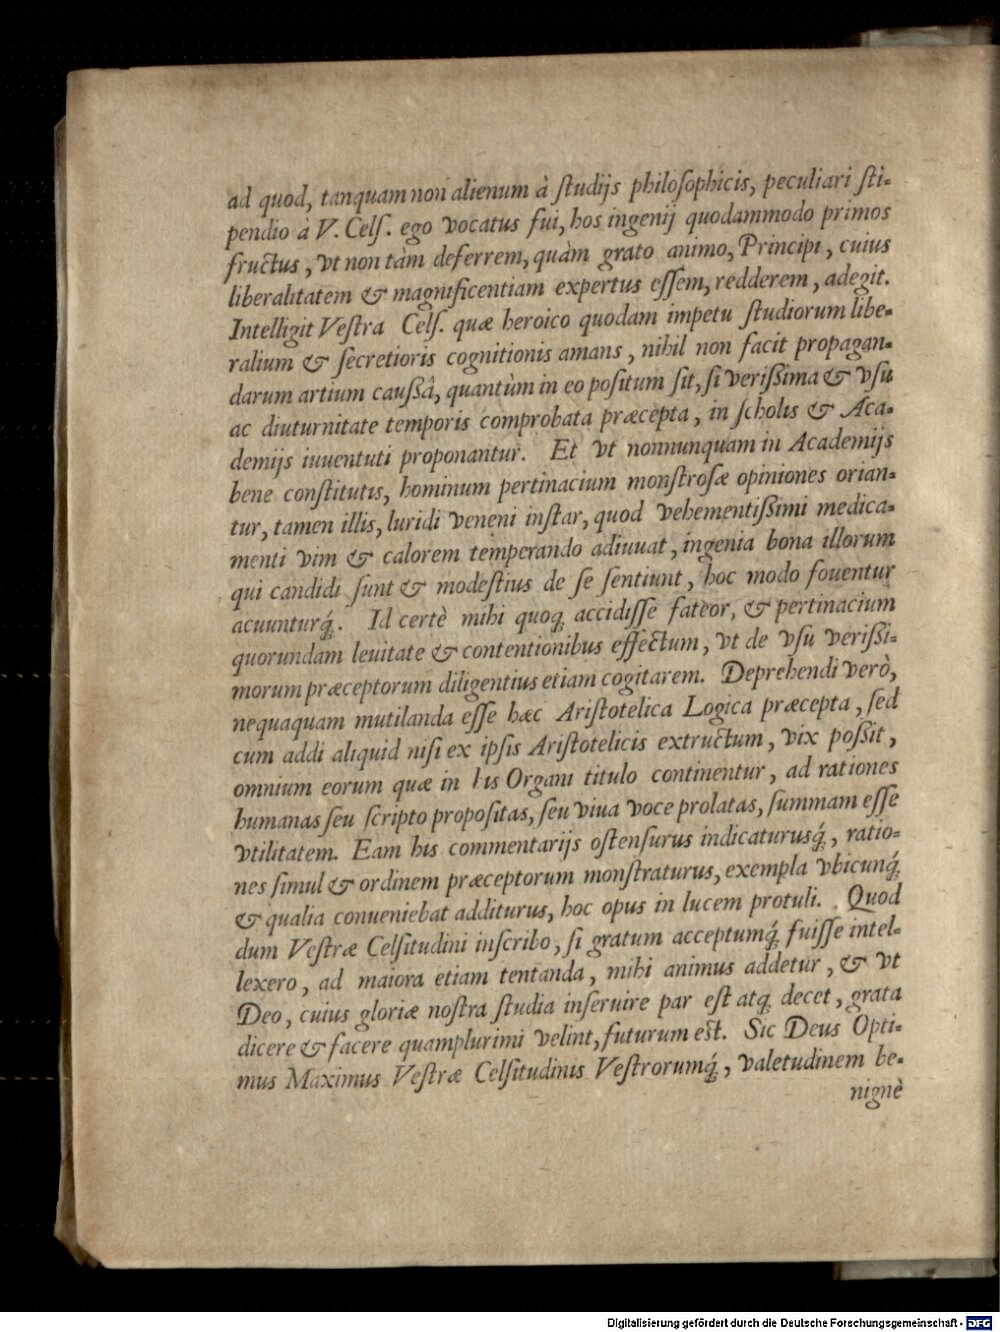 ad quod, tanquam non alienum à ſtudijs philoſophicis, peculiari ſti-
pendio à V. Celſ. ego vocatus fui, hos ingenij quodammodo primos
fructus, vt non tàm deferrem, quàm grato animo, Principi, cuius
liberalitatem & magnificentiam expertus eſſem, redderem, adegit.
Intelligit Veſtra Celſ. quæ heroico quodam impetu ſtudiorum libe-
ralium & ſecretioris cognitionis amans, nihil non facit propagan-
darum artium cauſſâ, quantùm in eo poſitum ſit, ſi veriſſima & vſu
ac diuturnitate temporis comprobata præcepta, in ſcholis & Aca-
demijs iuuentuti proponantur. Et vt nonnunquam in Academijs
bene conſtitutis, hominum pertinacium monſtroſæ opiniones orian-
tur, tamen illis, luridi veneni inſtar, quod vehementiſſimi medica-
menti vim & calorem temperando adiuuat, ingenia bona illorum
qui candidi ſunt & modeſtius de ſe ſentiunt, hoc modo fouentur
acuunturq́. Id certè mihi quoq accidiſſe fateor, & pertinacium
quorundam leuitate & contentionibus effectum, vt de vſu veriſſi-
morum præceptorum diligentius etiam cogitarem. Deprehendi verò,
nequaquam mutilanda eſſe hæc Ariſtotelica Logica præcepta, ſed
cum addi aliquid niſi ex ipſis Ariſtotelicis extructum, vix poſſit,
omnium eorum quæ in his Organi titulo continentur, ad rationes
humanas ſeu ſcripto propoſitas, ſeu viua voce prolatas, ſummam eſſe
vtilitatem. Eam his commentarijs oſtenſurus indicaturusq́, ratio-
nes ſimul & ordinem præceptorum monſtraturus, exempla vbicunq́
& qualia conueniebat additurus, hoc opus in lucem protuli. Quod
dum Veſtræ Celſitudini inſcribo, ſi gratum acceptumq́ fuiſſe intel-
lexero, ad maiora etiam tentanda, mihi animus addetur, & vt
Deo, cuius gloriæ noſtra ſtudia inſeruire par eſt atq decet, grata
dicere & facere quamplurimi velint, futurum eſt. Sic Deus Opti-
mus Maximus Veſtræ Celſitudinis Veſtrorumq́, valetudinem be-
nignè
Digitalisierung gefördert durch die Deutsche Forschungsgemeinschaft - DFG